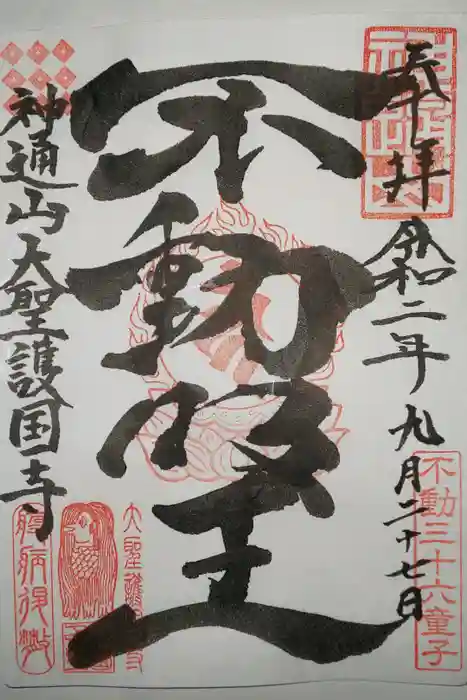 奉拝
令和二年九月二十七日
不動三十六童子
不動明王
神通山大聖護国寺
大聖護国寺